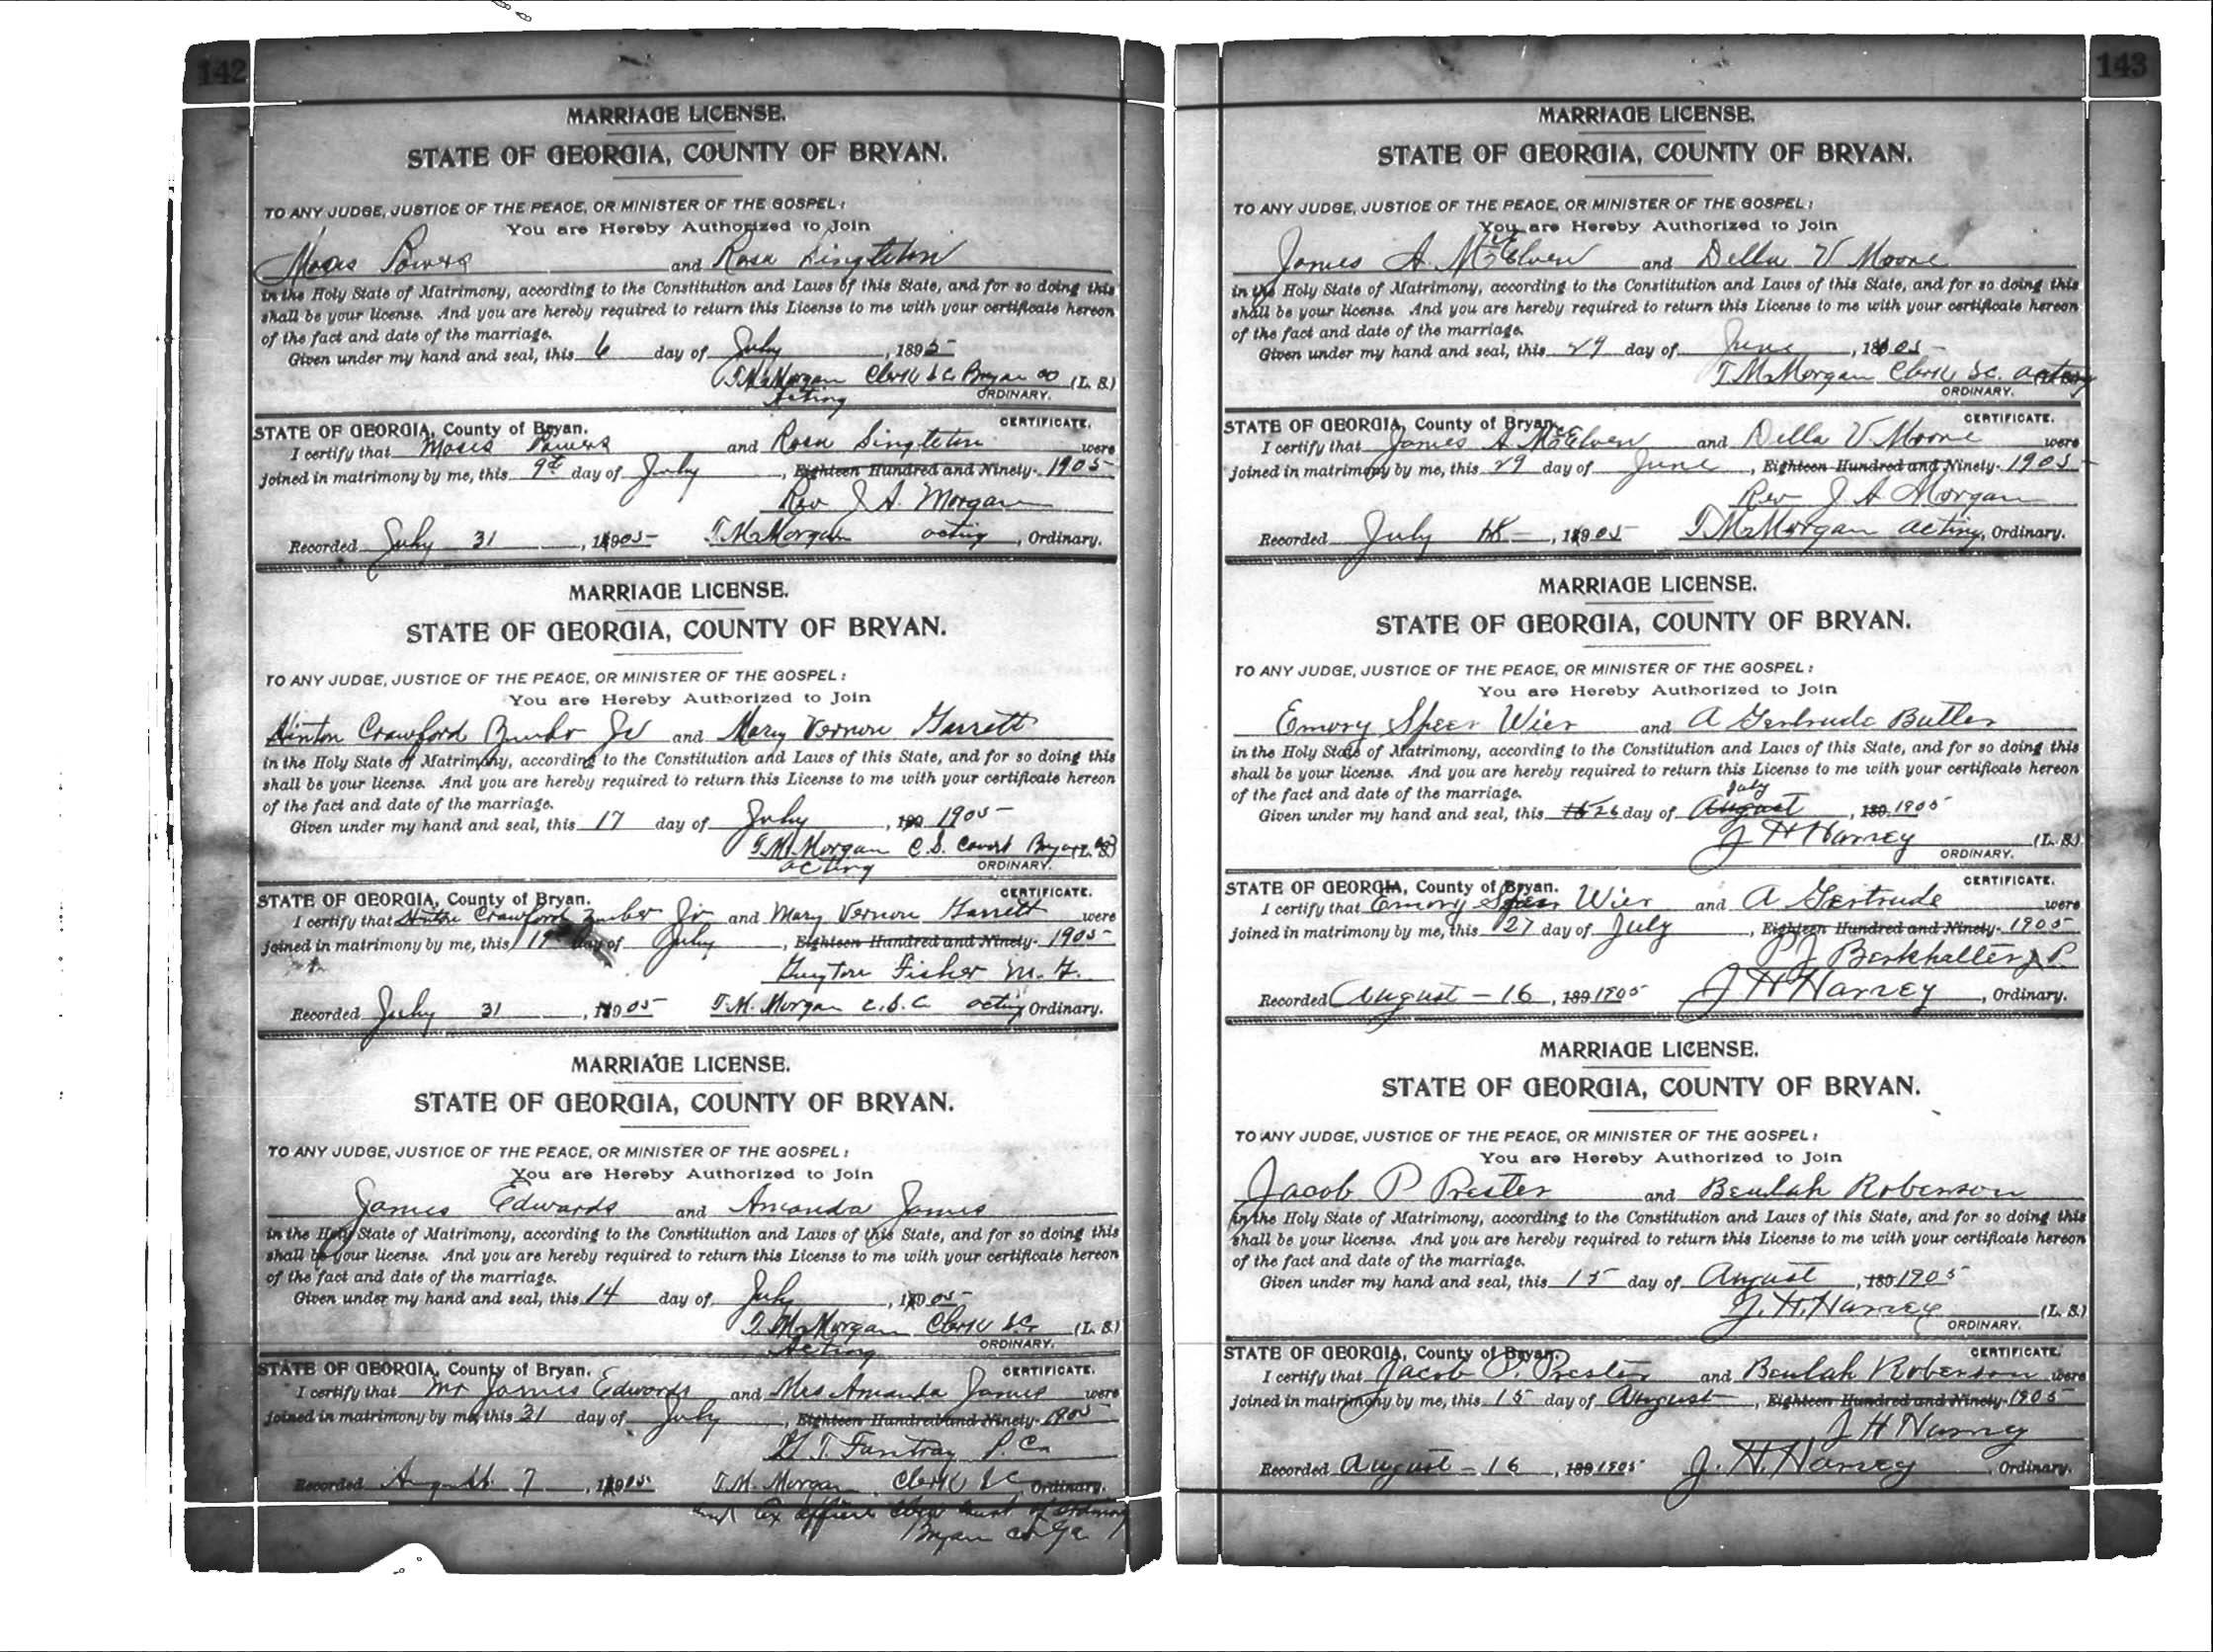 142
MARRIAGE LICENSE.
STATE OF GEORGIA, COUNTY OF BRYAN.
TO ANY JUDGE, JUSTICE OF THE PEACE, OR MINISTER OF THE GOSPEL:
You are Hereby Authorized to Join
Moses Powers and Rosa Singleton
in the Holy State of Matrimony, according to the Constitution and Laws of this State, and for so doing this
shall be your license. And you are hereby required to return this License to me with your certificate hereon
of the fact and date of the marriage.
Given under my hand and seal, this 6 day of July, 1895
T. M. Morgan Clerk S.C. Bryan Co (L. S.)
Acting ORDINARY.
CERTIFICATE.
STATE OF GEORGIA, County of Bryan.
I certify that Moses Powers and Rosa Singleton were
joined in matrimony by me, this 9th day of July, Eighteen Hundred and Ninety- 1905
Rev J. A. Morgan
Recorded July 31, 1905 T. M. Morgan acting, Ordinary.
MARRIAGE LICENSE.
STATE OF GEORGIA, COUNTY OF BRYAN.
TO ANY JUDGE, JUSTICE OF THE PEACE, OR MINISTER OF THE GOSPEL:
You are Hereby Authorized to Join
Hinton Crawford Jr and Mary Vernon Garrett
in the Holy State of Matrimony, according to the Constitution and Laws of this State, and for so doing this
shall be your license. And you are hereby required to return this License to me with your certificate hereon
of the fact and date of the marriage.
Given under my hand and seal, this 17 day of July, 189 1905
T. M. Morgan C. S. Court Bryan Co (L. S.)
acting ORDINARY.
CERTIFICATE.
STATE OF GEORGIA, County of Bryan.
I certify that Hinton Crawford Jr and Mary Vernon Garrett were
joined in matrimony by me, this 19th day of July, Eighteen Hundred and Ninety- 1905
Guyton Fisher M. G.
Recorded July 31, 1905 T. M. Morgan C. S. C. acting Ordinary.
MARRIAGE LICENSE.
STATE OF GEORGIA, COUNTY OF BRYAN.
TO ANY JUDGE, JUSTICE OF THE PEACE, OR MINISTER OF THE GOSPEL:
You are Hereby Authorized to Join
James Edwards and Amanda James
in the Holy State of Matrimony, according to the Constitution and Laws of this State, and for so doing this
shall be your license. And you are hereby required to return this License to me with your certificate hereon
of the fact and date of the marriage.
Given under my hand and seal, this 14 day of July, 1905
T. M. Morgan Clerk S.C. (L. S.)
Acting ORDINARY.
CERTIFICATE.
STATE OF GEORGIA, County of Bryan.
I certify that Mr James Edwards and Mrs Amanda James were
joined in matrimony by me, this 31 day of July, Eighteen Hundred and Ninety- 1905
T.
Recorded August 7, 1905 T. M. Morgan Clerk S C Ordinary.
and Ex officio Clerk Court of Ordinary
Bryan Co Ga
143
MARRIAGE LICENSE.
STATE OF GEORGIA, COUNTY OF BRYAN.
TO ANY JUDGE, JUSTICE OF THE PEACE, OR MINISTER OF THE GOSPEL:
You are Hereby Authorized to Join
James A. McElveen and Della V Moore
in the Holy State of Matrimony, according to the Constitution and Laws of this State, and for so doing this
shall be your license. And you are hereby required to return this License to me with your certificate hereon
of the fact and date of the marriage.
Given under my hand and seal, this 29 day of June, 1905
T. M. Morgan Clerk S.C. acting (L. S.)
ORDINARY.
CERTIFICATE.
STATE OF GEORGIA, County of Bryan.
I certify that James A McElveen and Della V. Moore were
joined in matrimony by me, this 29 day of June, Eighteen Hundred and Ninety- 1905
Rev J. A Morgan
Recorded July, 1905 T. M. Morgan acting, Ordinary.
MARRIAGE LICENSE.
STATE OF GEORGIA, COUNTY OF BRYAN.
TO ANY JUDGE, JUSTICE OF THE PEACE, OR MINISTER OF THE GOSPEL:
You are Hereby Authorized to Join
Emory Speer Wier and A Gertrude Butler
in the Holy State of Matrimony, according to the Constitution and Laws of this State, and for so doing this
shall be your license. And you are hereby required to return this License to me with your certificate hereon
of the fact and date of the marriage.
July
Given under my hand and seal, this 26 day of August, 189 1905
J H Harvey (L. S.)
ORDINARY.
CERTIFICATE.
STATE OF GEORGIA, County of Bryan.
I certify that Emory Speer Wier and A Gertrude were
joined in matrimony by me, this 27 day of July, Eighteen Hundred and Ninety- 1905
P J Berkhalter J P.
Recorded August - 16, 189 1905 J H Harvey, Ordinary.
MARRIAGE LICENSE.
STATE OF GEORGIA, COUNTY OF BRYAN.
TO ANY JUDGE, JUSTICE OF THE PEACE, OR MINISTER OF THE GOSPEL:
You are Hereby Authorized to Join
Jacob P Prester and Beulah Roberson
in the Holy State of Matrimony, according to the Constitution and Laws of this State, and for so doing this
shall be your license. And you are hereby required to return this License to me with your certificate hereon
of the fact and date of the marriage.
Given under my hand and seal, this 15 day of August, 189 1905
J. H. Harvey (L. S.)
ORDINARY.
CERTIFICATE.
STATE OF GEORGIA, County of Bryan.
I certify that Jacob P. Prester and Beulah Roberson were
joined in matrimony by me, this 15 day of August, Eighteen Hundred and Ninety- 1905
J H Harvey
Recorded August - 16, 189 1905 J. H. Harvey, Ordinary.